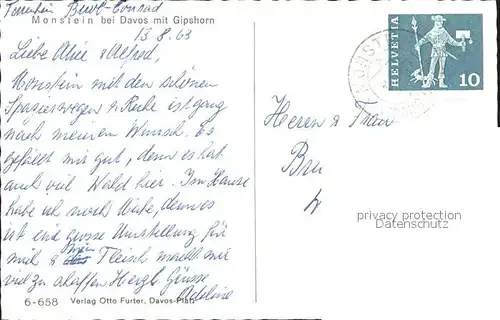 Ferienheim Buol-Conrad
Monstein bei Davos mit Gipshorn
13.8.63
Liebe Alice & Alfred,
Monstein mit den schönen
Spazierwegen & Ruhe ist ganz
nach meinem Wunsch. Es
gefällt mir gut, denn es hat
auch viel Wald hier. Im Hause
habe ich noch Mühe, denn es
ist eine grosse Umstellung für
mich & Fleisch macht mir
viel zu schaffen Herzl. Grüsse
Adeline
6-658 Verlag Otto Furter, Davos-Platz
HELVETIA
10
MONST
Herrn & Frau
Bru
privacy protection
AnsichtskartenVersand.com